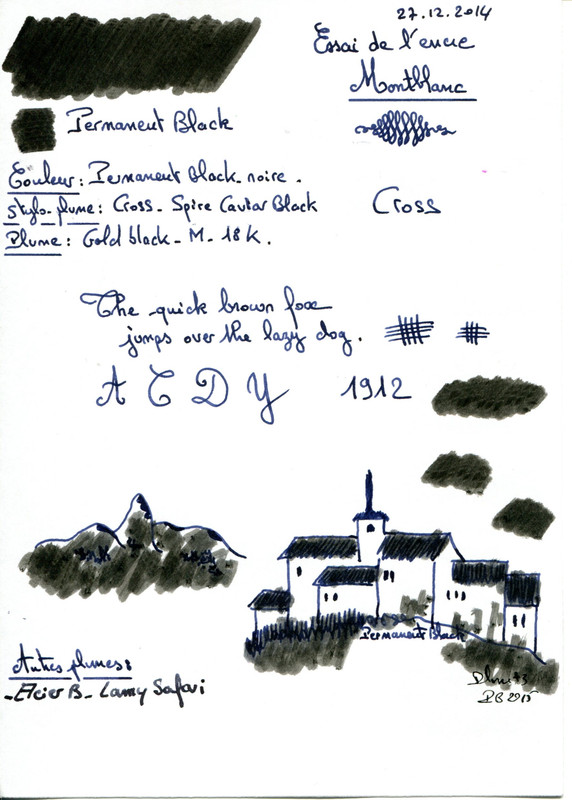 27.12.2014
Essai de l'encre
Montblanc
Permanent Black
Couleur : Permanent black - noire.
Stylo-plume : Cross - Spire Caviar Black
Cross
Plume : Gold black - M - 18 K.
The quick brown fox
jumps over the lazy dog.
A C D Y 1912
Permanent Black
Autres plumes :
- Acier B - Lamy Safari
PB 2015